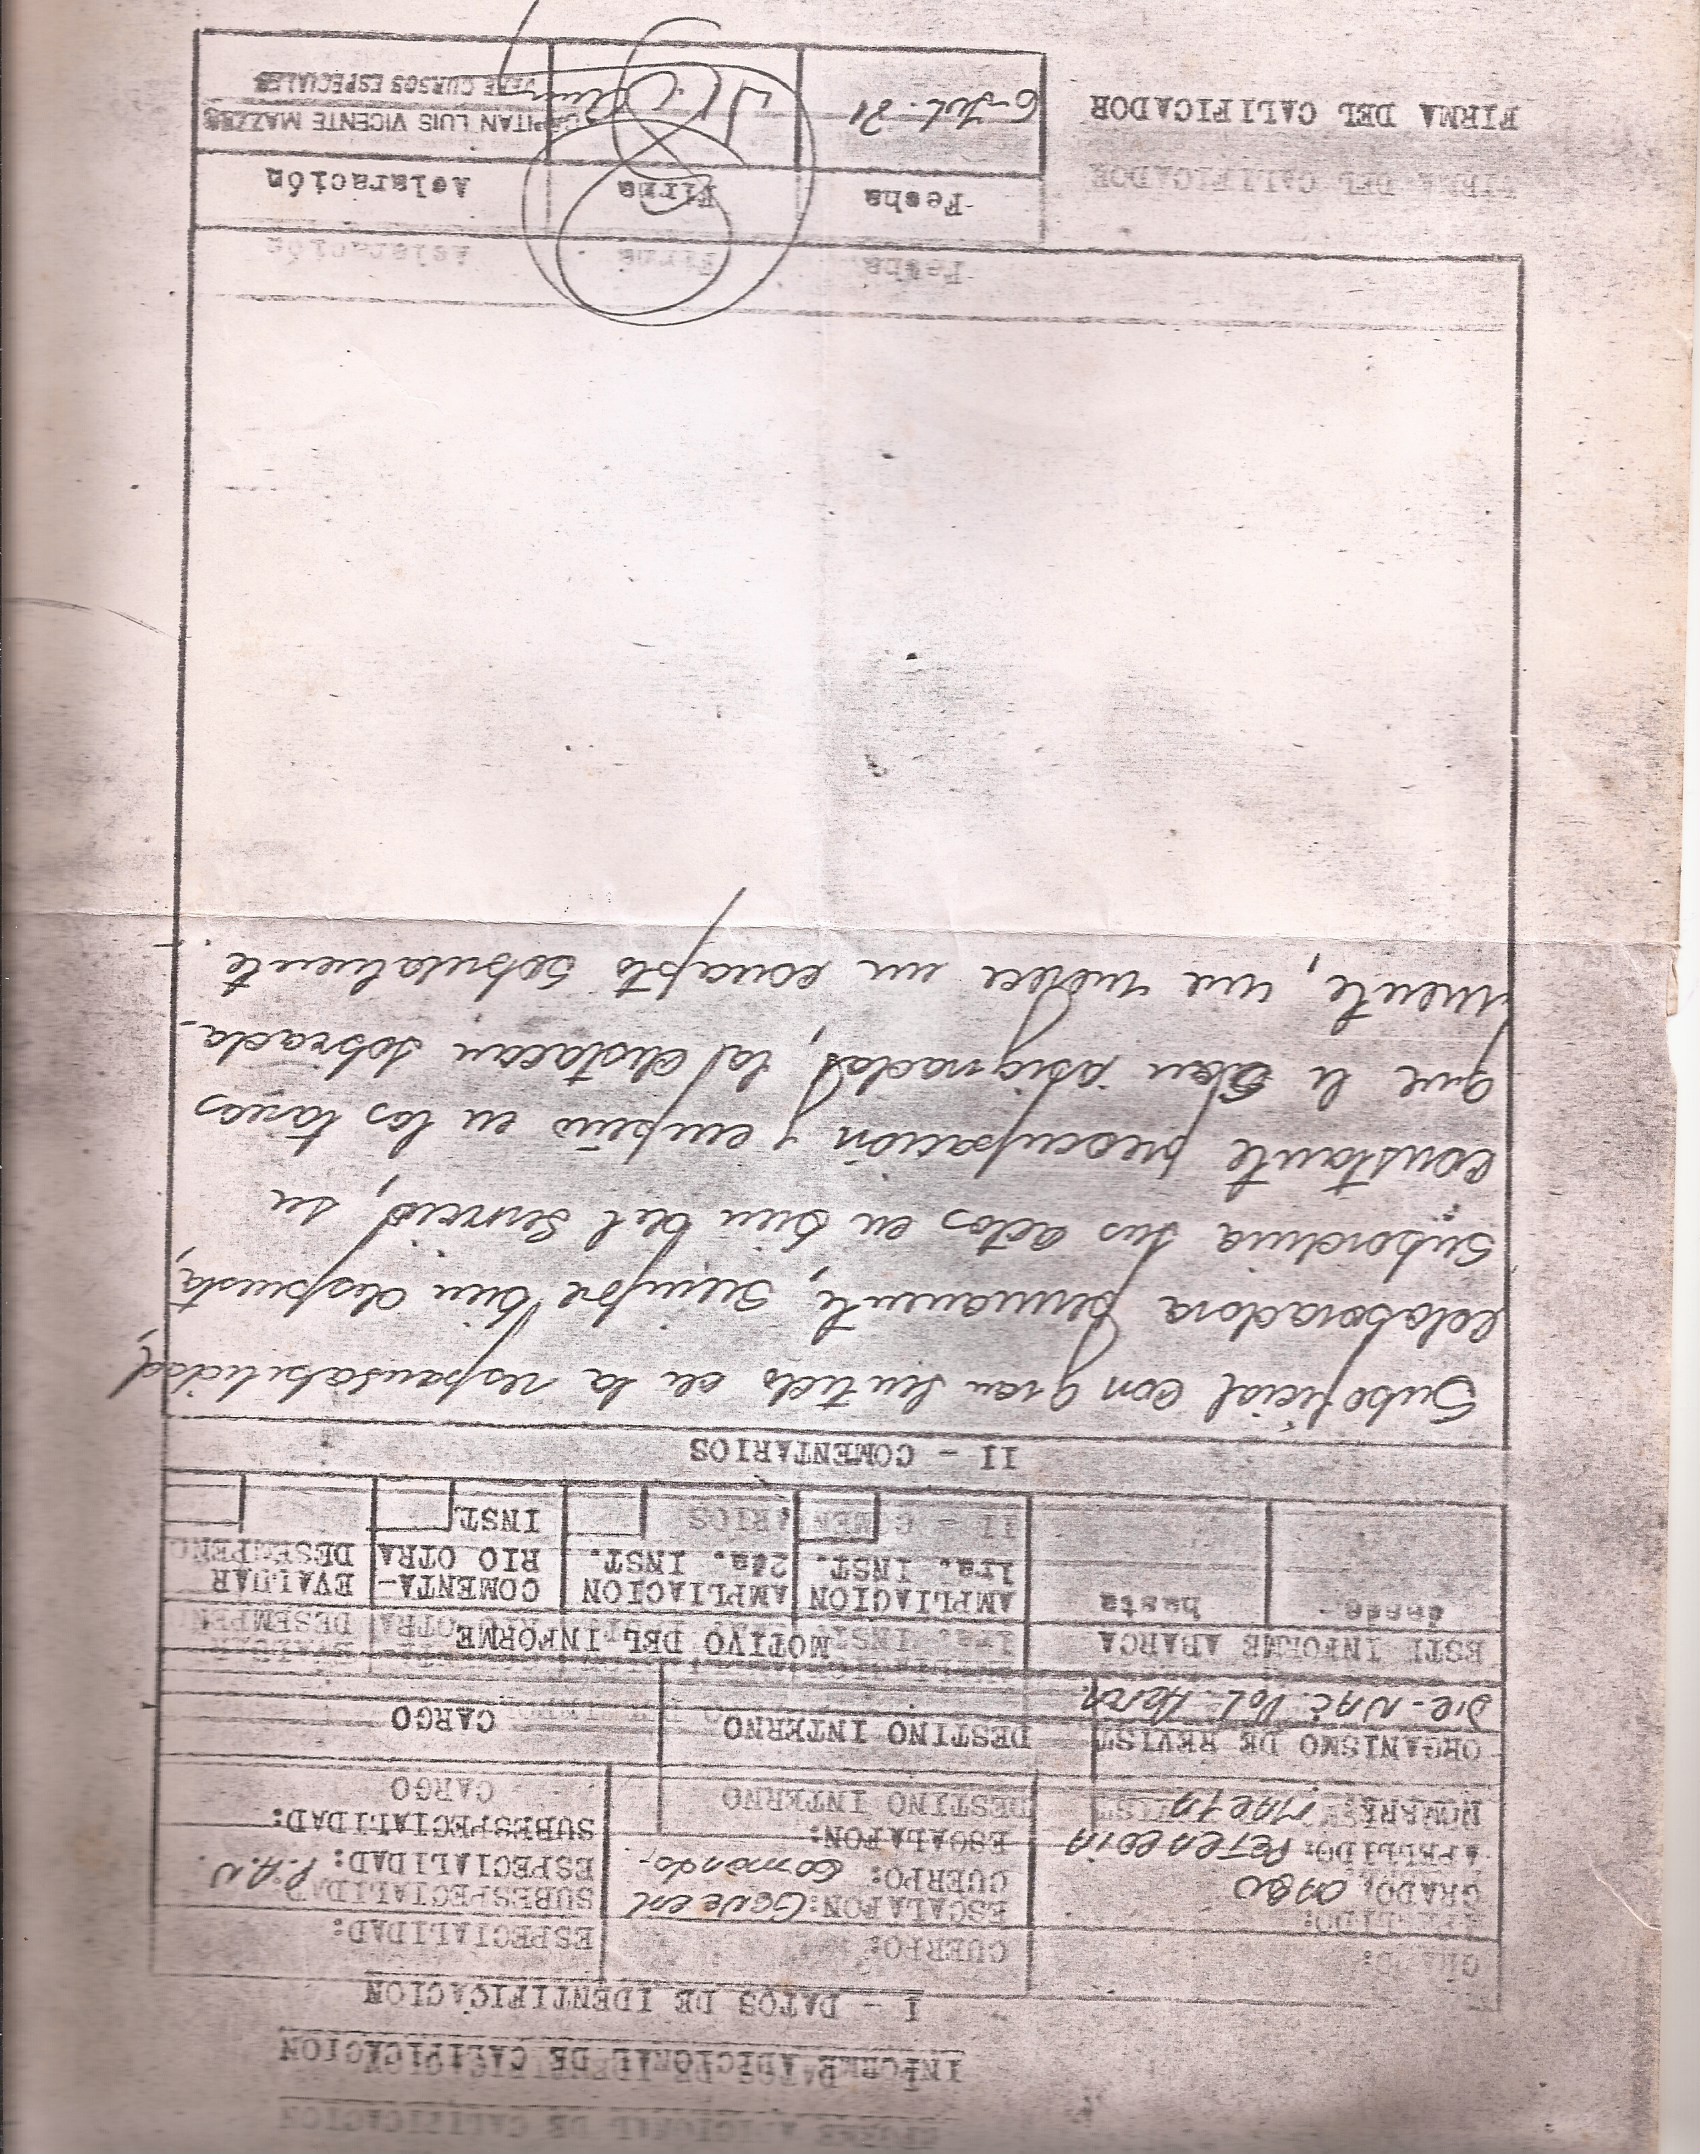 INFORME ADICIONAL DE CALIFICACION
I - DATOS DE IDENTIFICACION
GRADO: CABO
APELLIDO: PETRACOIA
NOMBRE: MARTA
CUERPO:
ESCALAFON: General
CUERPO: Comando.-
ESCALAFON:
ESPECIALIDAD:
SUBESPECIALIDAD:
ESPECIALIDAD: P.A.N.
SUBESPECIALIDAD:
ORGANISMO DE REVIST
DESTINO INTERNO
CARGO
DIR-NAC. POL. AERON.
ESTE INFORME ABARCA
desde
hasta
MOTIVO DEL INFORME
AMPLIACION
1ra. INST.
AMPLIACION
2da. INST.
COMENTA-
RIO OTRA
INST.
EVALUAR
DESEMPEÑO
II - COMENTARIOS
Suboficial con gran sentido de la responsabilidad,
colaboradora permanente, siempre bien dispuesta,
subordina sus actos en bien del servicio, su
constante preocupación y empeño en las tareas
que le son asignadas, la destacan sobrada-
mente, me merece un concepto sobresaliente.-
Fecha
Firma
Aclaración
FIRMA DEL CALIFICADOR
6-Jul.-81
CAPITAN LUIS VICENTE
JEFE CURSOS ESPECIALES